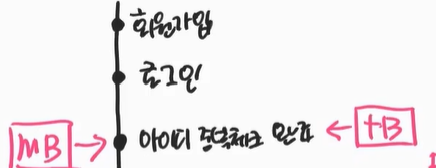 회원가입
로그인
mB → 아이디 중복체크 완료 ← +B